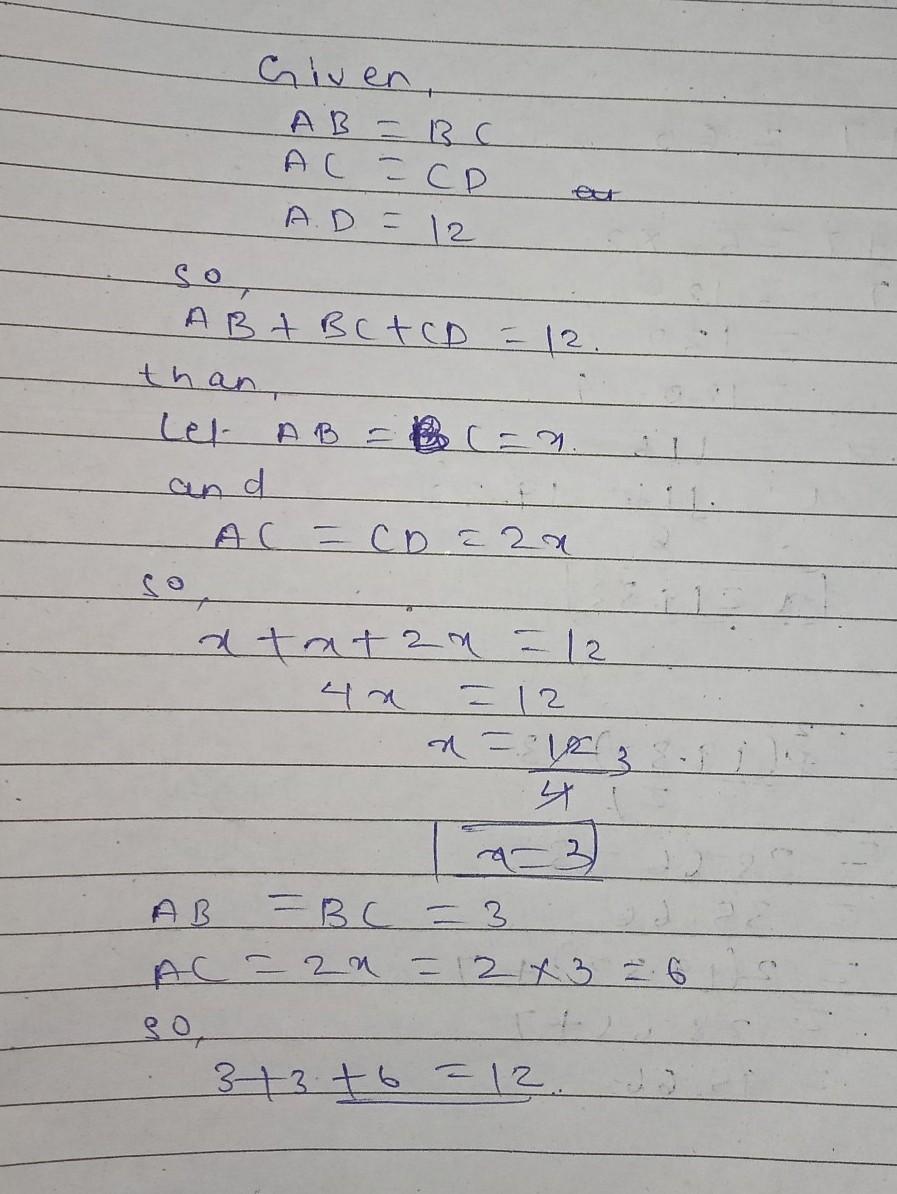 Given,
AB = BC
AC = CD
A.D = 12
so,
AB + BC + CD = 12.
than,
Let AB = BC = x.
and
AC = CD = 2x
so,
x + x + 2x = 12
4x = 12
x = 12 3
4
x = 3
AB = BC = 3
AC = 2x = 2 × 3 = 6
so,
3+3+6 = 12